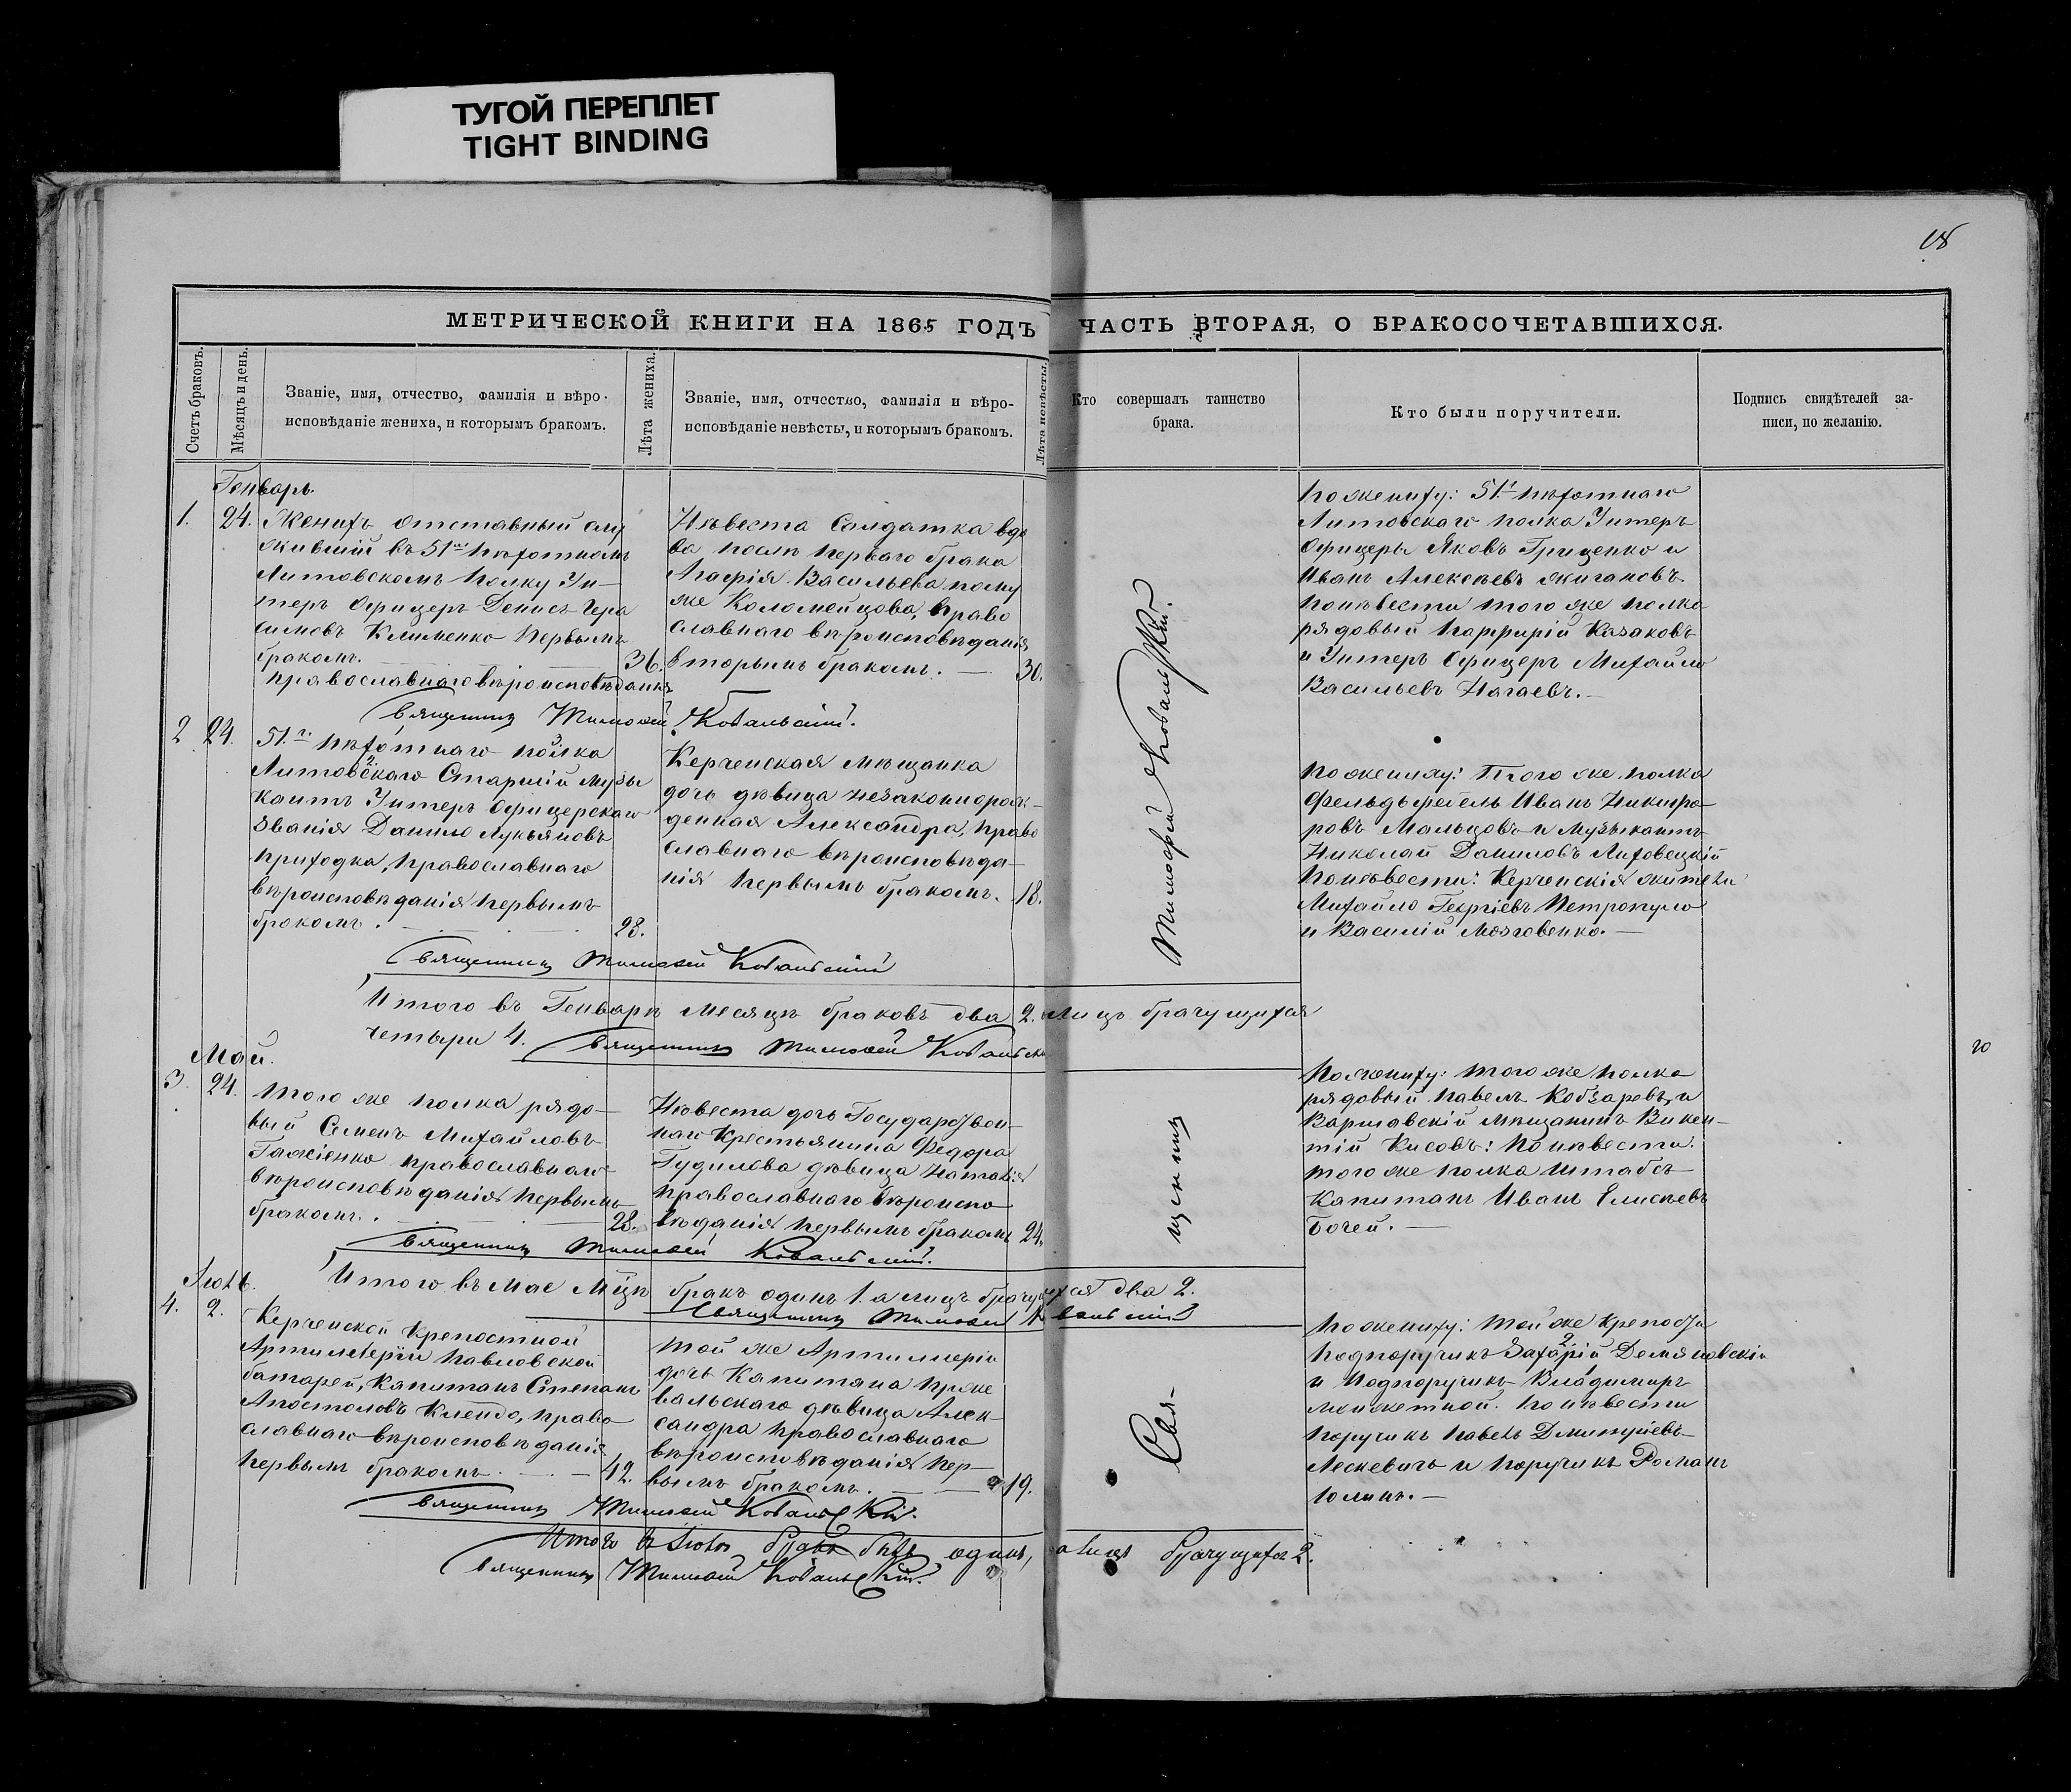 ТУГОЙ ПЕРЕПЛЕТ
TIGHT BINDING
18
МЕТРИЧЕСКОЙ КНИГИ НА 1865 ГОДЪ ЧАСТЬ ВТОРАЯ, О БРАКОСОЧЕТАВШИХСЯ.
Счетъ браковъ.
Мѣсяцъ и день.
Званіе, имя, отчество, фамилія и вѣро-
исповѣданіе жениха, и которымъ бракомъ.
Лѣта жениха.
Званіе, имя, отчество, фамилія и вѣро-
исповѣданіе невѣсты, и которымъ бракомъ.
Лѣта невѣсты.
Кто совершалъ таинство
брака.
Кто были поручители.
Подпись свидѣтелей за-
писи, по желанію.
Генварь.
1. 24.
Женихъ отставный слу
жившій въ 51мъ пѣхотномъ
Литовскомъ полку Ун-
теръ Офицеръ Денисъ Гера
симовъ Клименко первымъ
бракомъ. 36.
православнаго вѣроисповѣданія
Невеста Салдатка вдо
ва послѣ перваго брака
Агафія Васильева по му
же Коломейцова, право
славнаго вѣроисповѣданія
вторымъ бракомъ. 30.
По жениху: 51го пѣхотнаго
Литовскаго полка Унтеръ
Офицеры Яковъ Гриценко и
Иванъ Алексѣевъ Жигановъ
по невести того же полка
рядовый Парфирій Казаковъ
и Унтеръ Офицеръ Михайло
Васильевъ Нагаевъ.
Священникъ Тимофей Ковальскій.
2 24.
51.го пѣхотнаго полка
Литовскаго Старшій Музы
кантъ Унтеръ Офицерскаго
званія Данило Лукьяновъ
Приходка, православнаго
вѣроисповѣданія первымъ
бракомъ. 28.
Керченская мѣщанка
дочь дѣвица незаконнорож-
денная Александра, право
славнаго вѣроисповѣда-
нія первымъ бракомъ. 18.
По жениху: Того же полка
Фельдьфебель Иванъ Никифо-
ровъ Мальцовъ и Музыкантъ
Николай Даниловъ Литовецкій
По невести: Керченскія жители
Михайло Георгіевъ Петропуло
и Василій Мозговенко.
Священникъ Тимофей Ковальскій
Итого въ Генварѣ месяцѣ браковъ два 2. лицъ брачущихся
четыри 4. Священникъ Тимофей Ковальскій
Май.
3. 24.
Того же полка рядо-
вый Семенъ Михайловъ
Гажіенко православнаго
вѣроисповѣданія первымъ
бракомъ. 28.
Невеста дочь Государствен-
наго Крестьянина Федора
Гудимова дѣвица Наталія
православнаго вѣроиспо
вѣданія первымъ бракомъ 24.
По жениху: того же полка
рядовый Павелъ Кобзаревъ и
Варшавскій мѣщанинъ Викен-
тій Кисовъ: По невести:
того же полка Штабсъ
Капитанъ Иванъ Елисѣевъ
Бочей.
Священникъ Тимофей Ковальскій.
Итого въ Мае Мцѣ бракъ одинъ 1. а лицъ брачущихся два 2.
Священникъ Тимофей Ковальскій
Іюль.
4. 2.
Керченской Крепостной
Артилеріи Павловской
батареи, Капитанъ Степанъ
Апостоловъ Клеидо, право
славнаго вѣроисповѣданія
первымъ бракомъ. 42.
Той же Артиллеріи
дочь Капитана Прже
вальскаго дѣвица Алек-
сандра православнаго
вѣроисповѣданія пер-
вымъ бракомъ. 19.
По жениху: той же крепости
Подпоручикъ Захарій Демяновскій
и Подпоручикъ Владимиръ
Монжетной. По невести
поручикъ Павелъ Дмитріевъ
Лескевичъ и поручикъ Романъ
Юлинъ.
Священникъ Тимофей Ковальскій.
Итого въ Іюлѣ бракъ бытъ одинъ, а лицъ брачущихся 2.
Священникъ Тимофей Ковальскій.
Свя-
щенникъ
Тимофей Ковальскій.